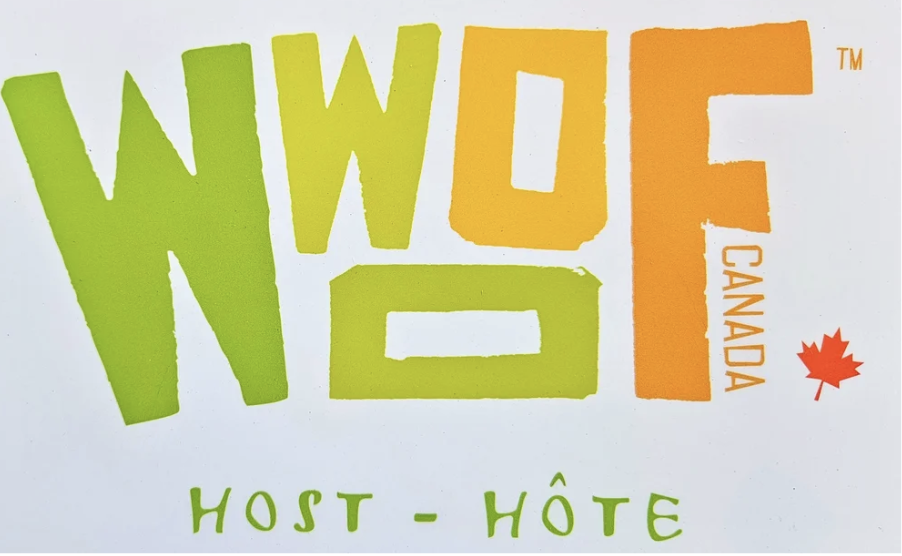 WWOOF
TM
CANADA
HOST - HÔTE